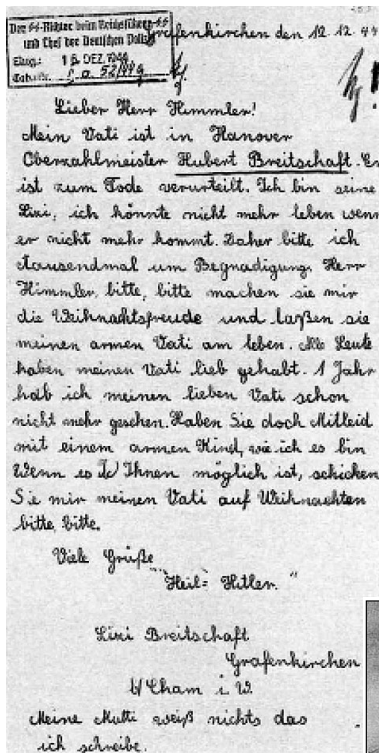 Der SS-Richter beim Reichsführer-SS
und Chef der Deutschen Polizei
Grafenkirchen den 12. 12. 44
Eing.: 16. DEZ. 1944
Lieber Herr Himmler!
Mein Vati ist in Hanover
Oberzahlmeister Hubert Breitschaft. Er
ist zum Tode verurteilt. Ich bin seine
Lixi, ich könnte nicht mehr leben wenn
er nicht mehr kommt. Daher bitte ich
tausendmal um Begnadigung. Herr
Himmler, bitte, bitte machen sie mir
die Weihnachtsfreude und laßen sie
meinen armen Vati am leben. Alle Leute
haben meinen Vati lieb gehabt. 1 Jahr
hab ich meinen lieben Vati schon
nicht mehr gesehen. Haben Sie doch Mitleid
mit einem armen Kind, wie ich es bin
Wenn es Ihnen möglich ist, schicken
Sie mir meinen Vati auf Weihnachten
bitte, bitte.
Viele Grüße
"Heil= Hitler."
Lixi Breitschaft
Grafenkirchen
b/ Cham i. W.
Meine Mutti weiß nichts das
ich schreibe.